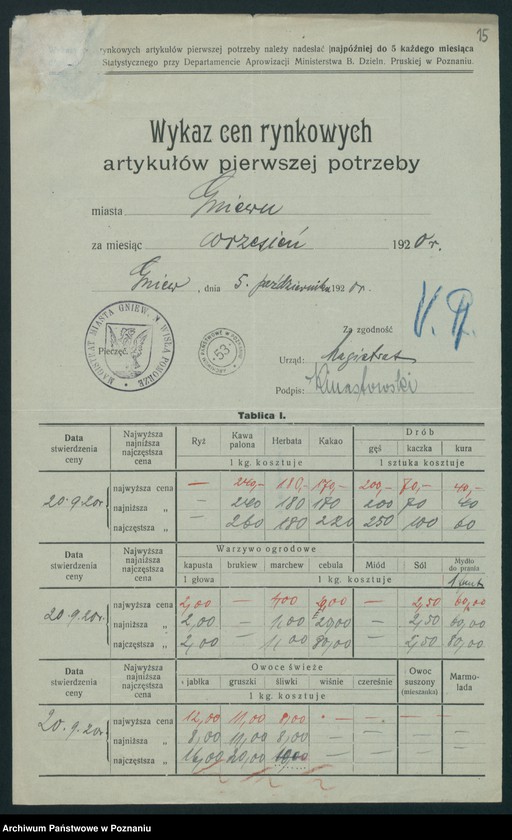 15
rynkowych artykułów pierwszej potrzeby należy nadesłać (najpóźniej do 5 każdego miesiąca
Sztystycznego przy Departamencie Aprowizacji Ministerstwa B. Dzieln. Pruskiej w Poznaniu.
Wykaz cen rynkowych
artykułów pierwszej potrzeby
miasta Gniewu
za miesiąc wrzesień 1920 r.
Gniew, dnia 5. października 1920 r.
V. R.
Za zgodność
MAGISTRAT MIASTA GNIEW. N. WISŁĄ POMORZE
Pieczęć.
ARCHIWUM PAŃSTWOWE W POZNANIU 53
Urząd: Magistrat
Podpis:
Tablica I.
Data stwierdzenia ceny Najwyższa najniższa najczęstsza cena Ryż Kawa palona Herbata Kakao Drób
gęś kaczka kura
1 kg. kosztuje 1 sztuka kosztuje
20.9.20r. najwyższa cena — 240,- 180,- 170,- 200,- 70,- 40,-
najniższa „ — 240 180 180 200 70 40
najczęstsza „ 260 180 220 250 100 60
Data stwierdzenia ceny Najwyższa najniższa najczęstsza cena Warzywo ogrodowe
kapusta brukiew marchew cebula Miód Sól Mydło do prania
1 głowa 1 kg. kosztuje 1 funt
20.9.20r. najwyższa cena 2,00 — 1,00 — 2,50 60,00
najniższa „ 2,00 — 1,00 20,00 — 2,50 60,00
najczęstsza „ 2,00 — 1,00 — 2,50 80,00
Data stwierdzenia ceny Najwyższa najniższa najczęstsza cena Owoce świeże
jabłka gruszki śliwki wiśnie czereśnie Owoc suszony (mieszanka) Marmolada
1 kg. kosztuje
20.9.20r. najwyższa cena 12,00 11,00 9,00 — — — —
najniższa „ 8,00 11,00 8,00 — — — —
najczęstsza „ 16,00 20,00 — — — —
Archiwum Państwowe w Poznaniu